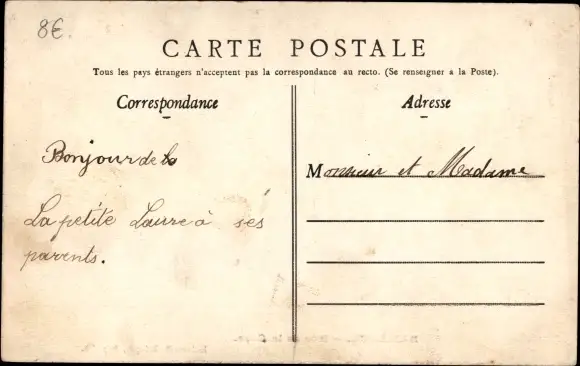 8€
CARTE POSTALE
Tous les pays étrangers n'acceptent pas la correspondance au recto. (Se renseigner a la Poste).
Correspondance
Adresse
Bonjour de la
La petite Laure à ses
parents.
Monsieur et Madame